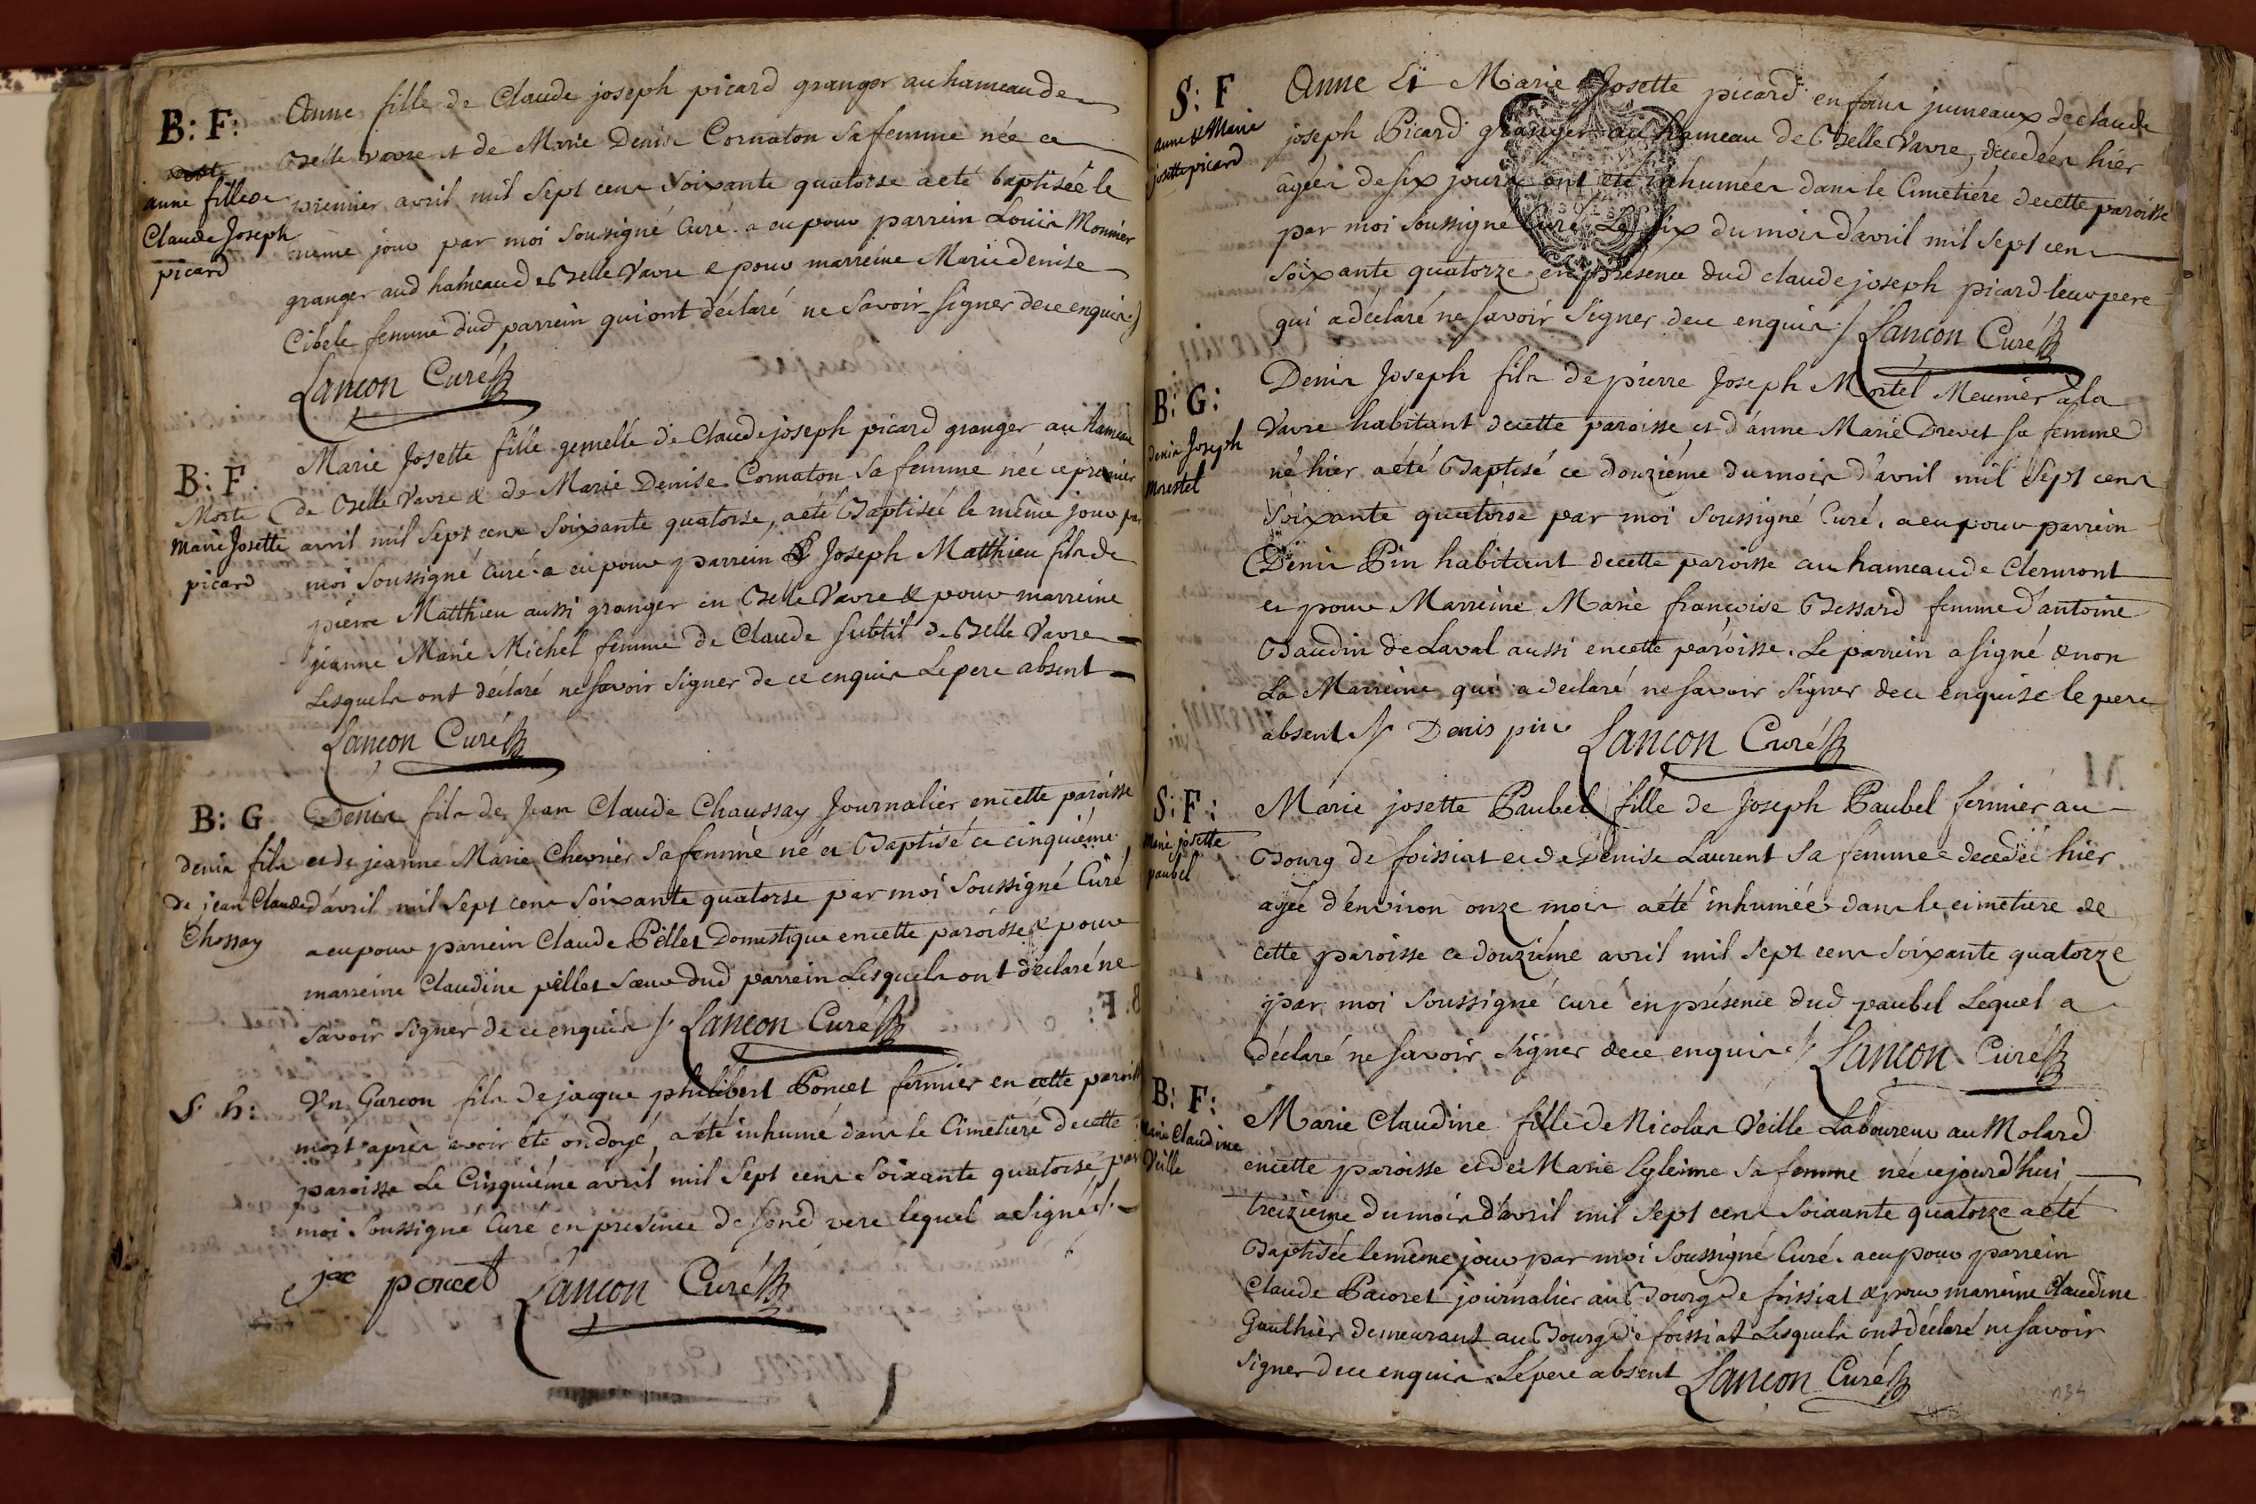 B: F:
morte
anne fille de
Claude Joseph
picard
Anne fille de Claude joseph picard granger au hameau de
Belle vavre et de Marie Denise Cornaton sa femme née ce
premier avril mil sept cens soixante quatorse a eté baptisée le
même jour par moi soussigné Curé. a eu pour parrein Louis Monnier
granger aud hameau de Belle Vavre & pour marreine Marie denise
Cibele femme dud parrein qui ont déclaré ne savoir signer de ce enquis
Lançon Curé
B: F.
Morte
Marie Josette
picard
Marie Josette fille gemelle de Claude joseph picard granger au hameau
de Belle Vavre & de Marie Denise Cornaton sa femme née ce premier
avril mil sept cens soixante quatorse, a eté Baptisée le même jour par
moi soussigné Curé. a eu pour parrein Joseph Matthieu fils de
pierre Matthieu aussi granger en Belle Vavre & pour marreine
jeanne Marie Michel femme de Claude subtil de Belle Vavre
Lesquels ont déclaré ne savoir signer de ce enquis Le pere absent
Lançon Curé
B: G
denis fils
de jean Claude
Chossay
Denis fils de Jean Claude Chaussay Journalier en cette paroisse
et de jeanne Marie Chevrier sa femme né et Baptisé ce cinquiéme
d'avril mil sept cens soixante quatorse par moi soussigné Curé
a eu pour parrein Claude Pellet Domestique en cette paroisse & pour
marreine Claudine pellet sœur dud parrein Lesquels ont déclaré ne
savoir signer de ce enquis /. Lançon Curé
S. h:
Un Garçon fils de jaque philibert Poncet fermier en cette paroisse
mort après avoir été ondoyé, a été inhumé dans le Cimetiére de cette
paroisse Le Cinquiéme avril mil sept cens soixante quatorse par
moi soussigné Curé en presence de son d pere lequel a signé /.
jac poncet Lançon Curé
S: F
anne & Marie
josette picard
Anne Et Marie Josette picard enfans jumeaux de claude
joseph Picard granger au hameau de Belle Vavre, décedées hier
agées de six jours ont été inhumées dans le Cimetiére de cette paroisse
par moi soussigné Curé Le six du mois d'avril mil sept cens
soixante quatorze en présence dud claude joseph picard leur pere
qui a déclaré ne savoir signer de ce enquis / Lançon Curé
B: G:
denis Joseph
morestel
Denis Joseph fils de pierre Joseph Mortel Meunier à la
Vavre habitant de cette paroisse et d'anne Marie Drevet sa femme
né hier a été Baptisé ce douziéme du mois d'avril mil sept cens
soixante quatorse par moi soussigné Curé. a eu pour parrein
Denis Pin habitant de cette paroisse au hameau de Clermont
et pour Marreine Marie françoise Bessard femme d'antoine
Baudin de Laval aussi en cette paroisse. Le parrein a signé & non
La Marreine qui a declaré ne savoir signer de ce enquise le pere
absent /. Denis pin Lançon Curé
S: F:
Marie josette
paubel
Marie josette Paubel fille de Joseph Paubel fermier au
Bourg de foissiat et de Denise Laurent sa femme decedée hier
agée d'environ onze mois a été inhumée dans le cimetiere de
cette paroisse ce douziéme avril mil sept cens soixante quatorze
par moi soussigné curé en présence dud paubel Lequel a
déclaré ne savoir signer de ce enquis /. Lançon Curé
B: F:
Marie Claudine
Veille
Marie Claudine fille de Nicolas Veille Laboureur au Molard
en cette paroisse et de Marie sa femme née cejourd'hui
treiziéme du mois d'avril mil sept cens soixante quatorze a été
Baptisée le même jour par moi soussigné Curé. a eu pour parrein
Claude Pacoret journalier au Bourg de foissiat & pour marreine Claudine
Gauthier demeurant au Bourg de foissiat Lesquels ont déclaré ne savoir
signer de ce enquis Le pere absent Lançon Curé